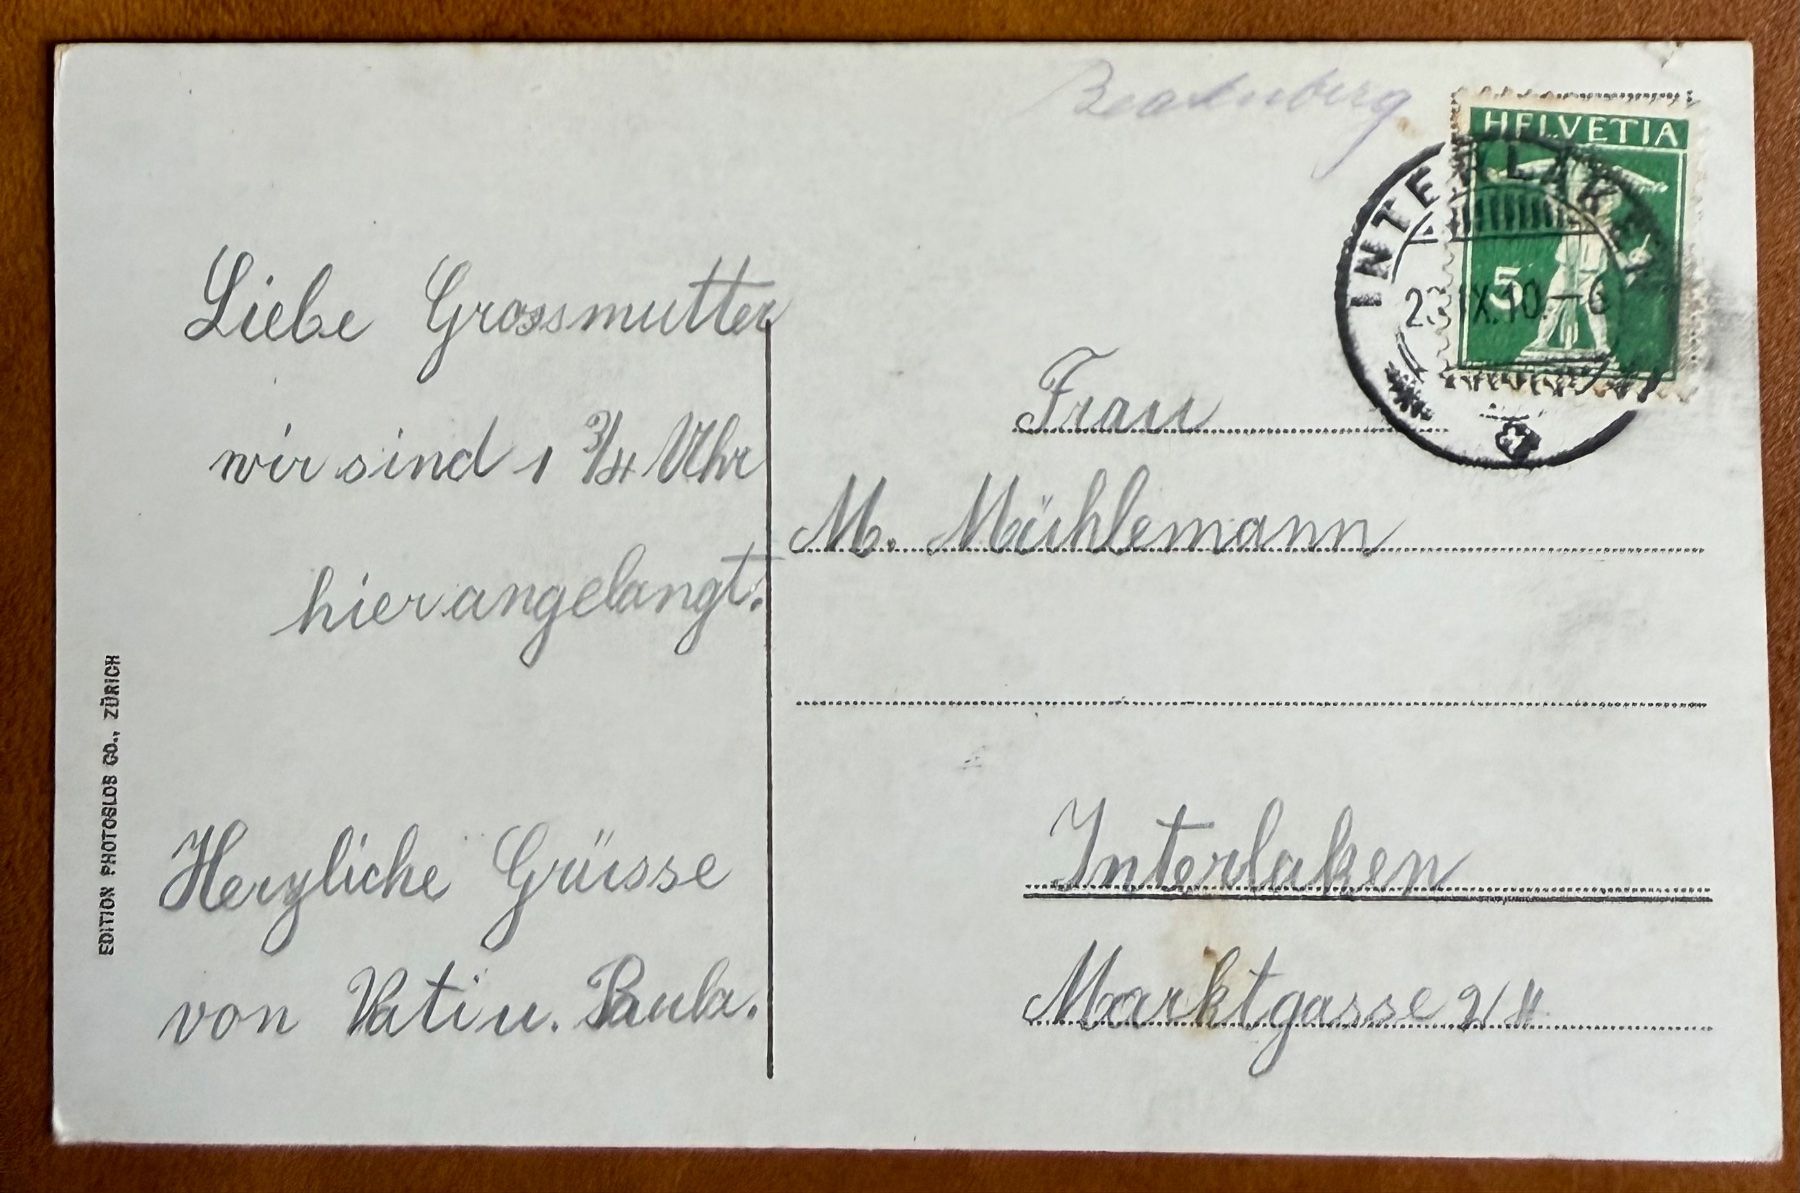 Beatenberg
HELVETIA
INTERLAKEN
5
23.IX.10.–6
Liebe Grossmutter
wir sind 1 3/4 Uhr
hier angelangt.
Herzliche Grüsse
von Vati u. Paula.
Frau
M. Mühlemann
Interlaken
Marktgasse 24
EDITION PHOTOGLOB CO., ZÜRICH